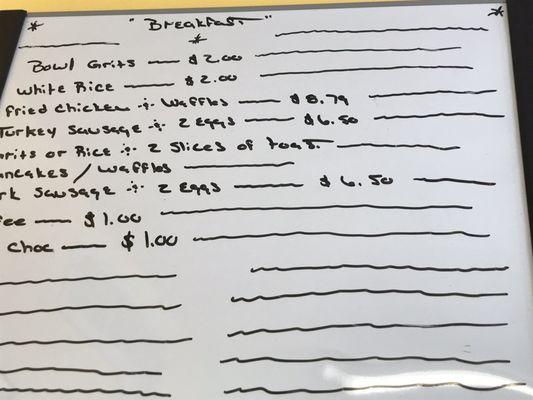 " Breakfast "
Bowl Grits — $2.00
White Rice — $2.00
Fried Chicken & Waffles — $8.79
Turkey Sausage & 2 Eggs — $6.50
rits or Rice & 2 Slices of toast
ncakes / Waffles
rk Sausage & 2 Eggs — $6.50
fee — $1.00
Choc — $1.00